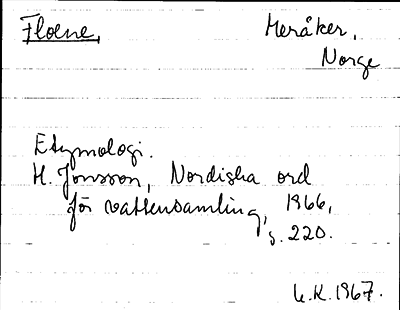 Floene,
Meråker,
Norge
Etymologi.
H. Jonsson, Nordiska ord
för vattensamling, 1966,
s. 220.
U.K. 1967.